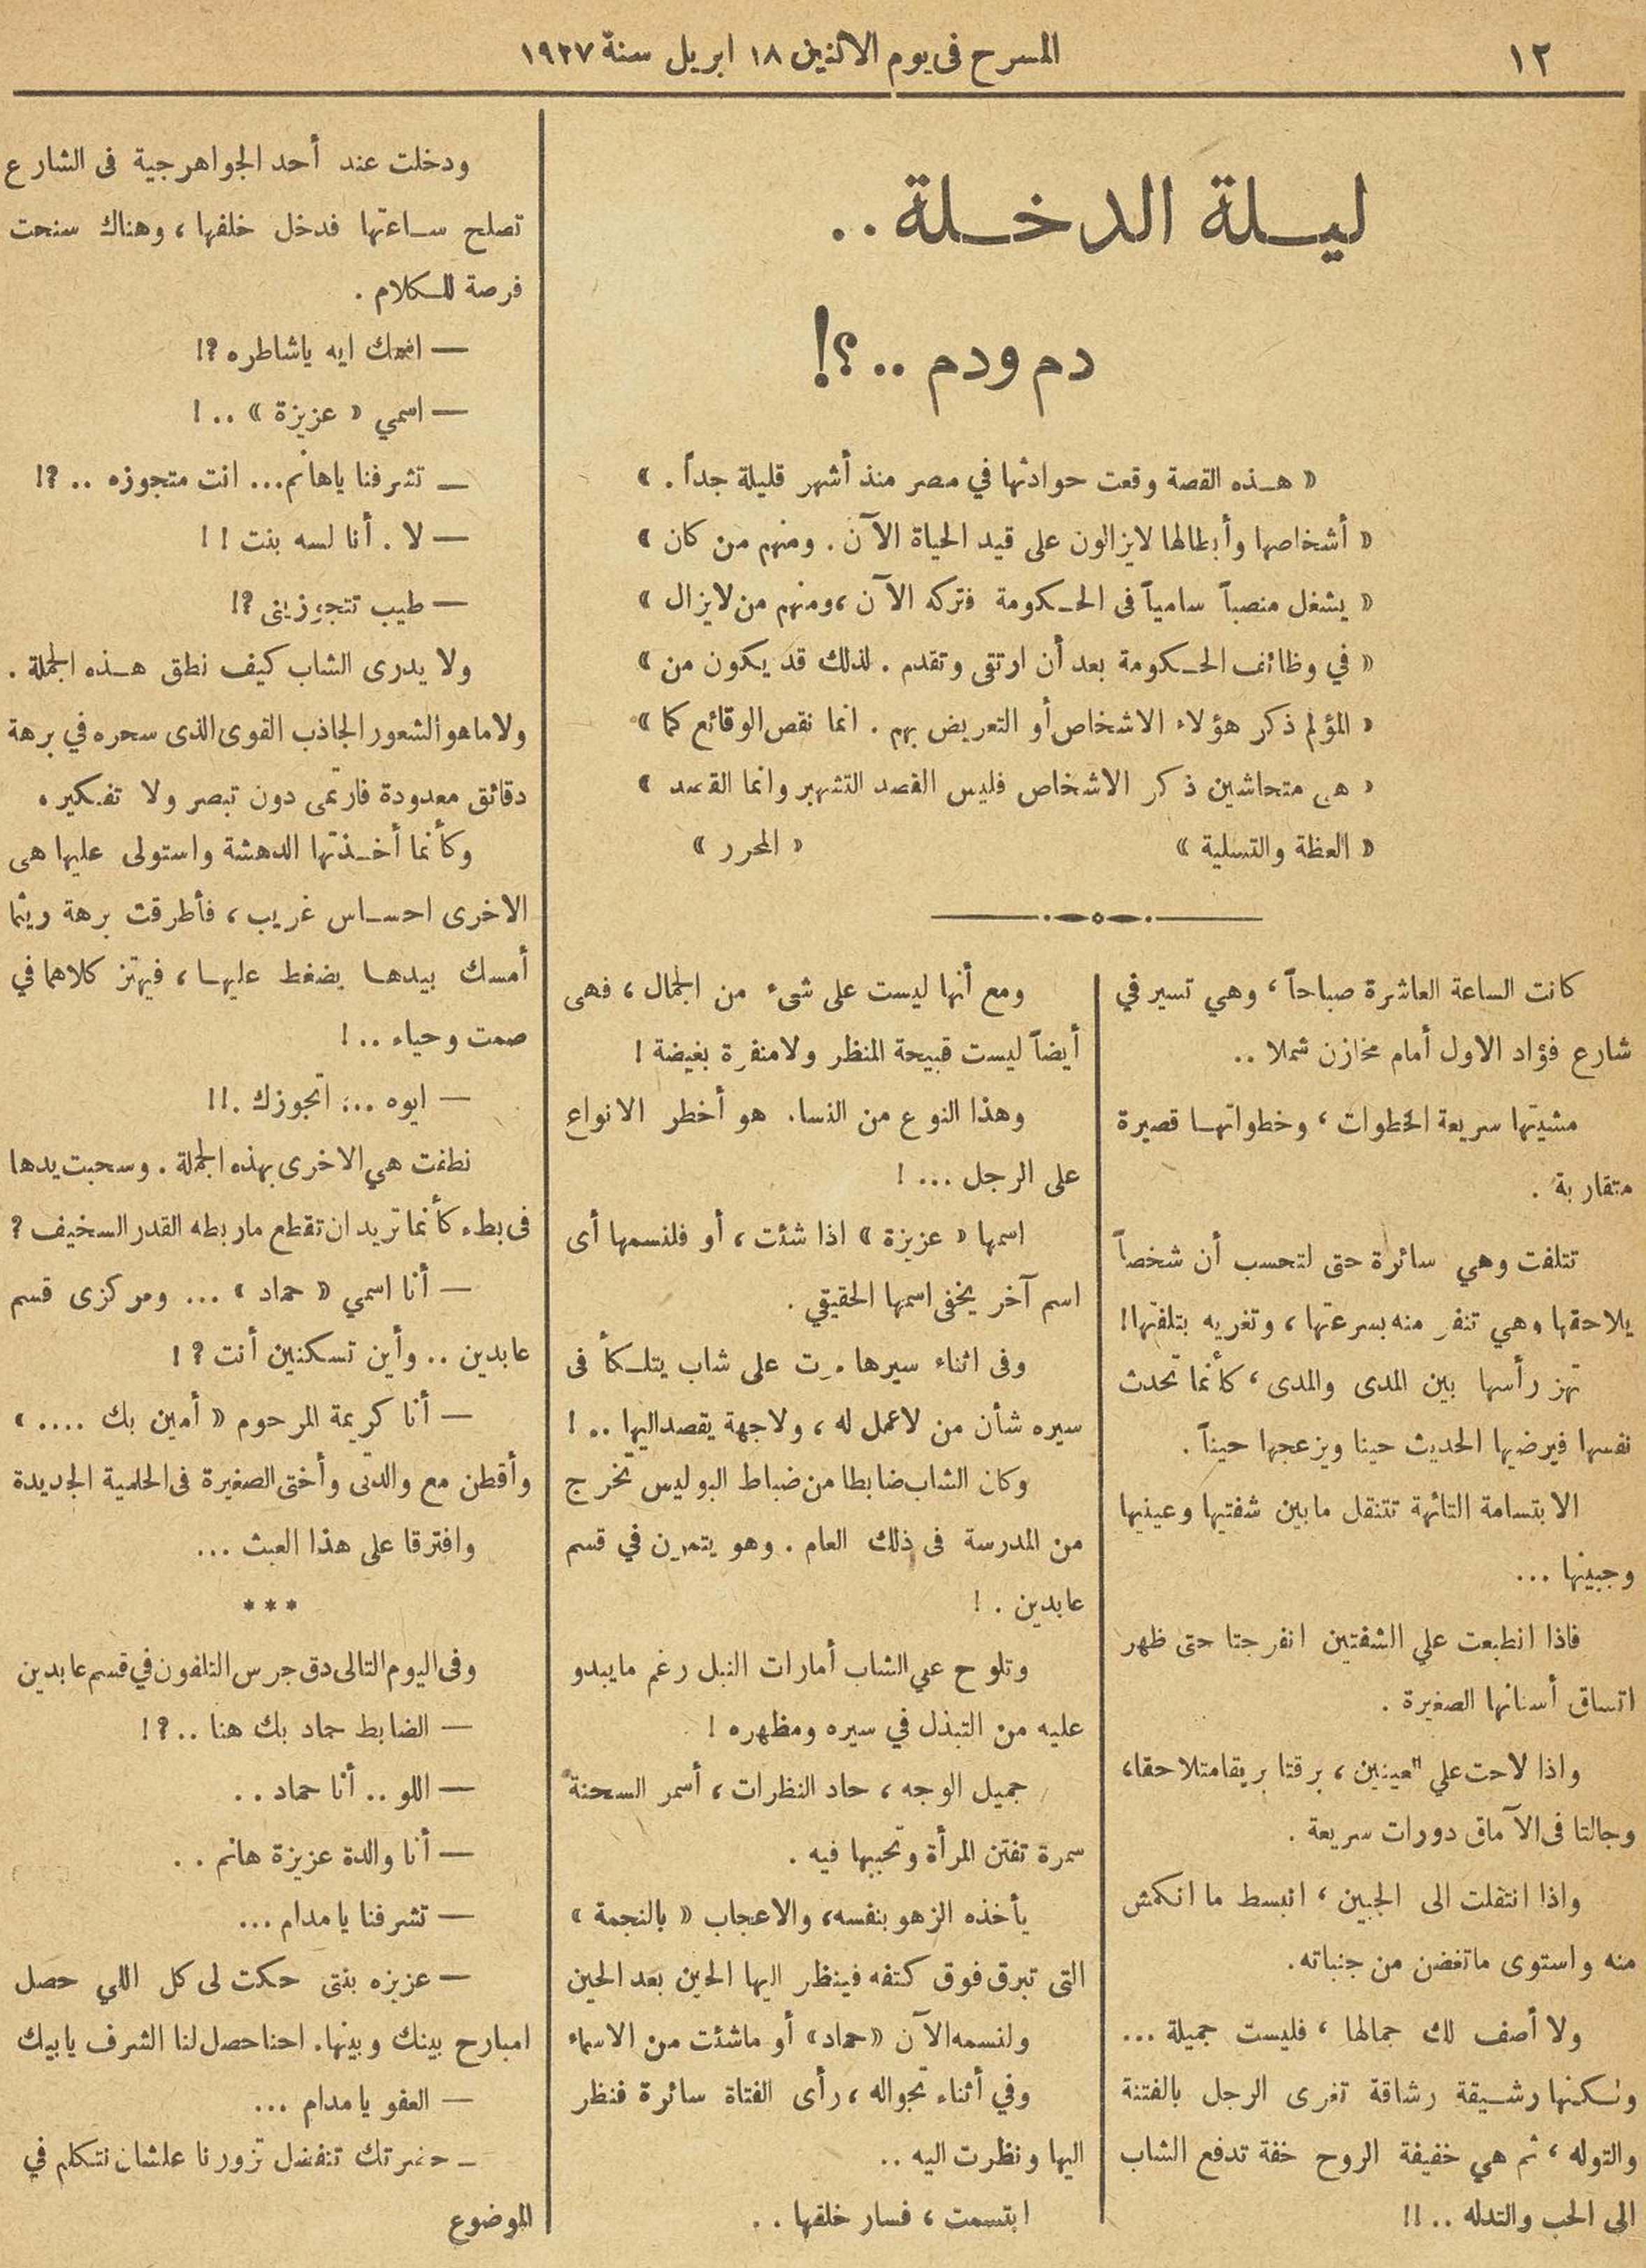 ١٢
المسرح فى يوم الاثنين ١٨ ابريل سنة ١٩٢٧
ليـلة الدخـلة..
دم ودم ..؟!
« هـذه القصة وقعت حوادثها في مصر منذ أشهر قليلة جداً . »
« أشخاصها وأبطالها لايزالون على قيد الحياة الآن . ومنهم من كان »
« يشغل منصباً سامياً فى الحـكومة فتركه الآن ، ومنهم من لايزال »
« في وظائف الحـكومة بعد أن ارتقى وتقدم . لذلك قد يكون من »
« المؤلم ذكر هؤلاء الاشخاص أو التعريض بهم . انما نقص الوقائع كما »
« هى متحاشين ذكر الاشخاص فليس القصد التشهير وانما القصد »
« العظة والتسلية » « المحرر »
كانت الساعة العاشرة صباحاً ، وهي تسير في
شارع فؤاد الاول أمام مخازن شملا ..
مشيتها سريعة الخطوات ، وخطواتهـا قصيرة
متقاربة .
تتلفت وهي سائرة حتى لتحسب أن شخصاً
يلاحقها وهي تنفر منه بسرعتها ، وتغريه بتلفتها !
تهز رأسها بين المدى والمدى ، كأنما تحدث
نفسها فيرضيها الحديث حينا ويزعجها حيناً .
الابتسامة التائهة تتنقل مابين شفتيها وعينيها
وجبينها ...
فاذا انطبعت علي الشفتين انفرجتا حتى ظهر
اتساق أسنانها الصغيرة .
واذا لاحت علي العينين ، برقتا بريقا متلاحقا ،
وجالتا فى الآماق دورات سريعة .
واذا انتقلت الى الجبين ، انبسط ما انكمش
منه واستوى ماتغضن من جنباته .
ولا أصف لك جمالها ، فليست جميلة ...
ولـكنها رشـيقة رشاقة تغرى الرجل بالفتنة
والتوله ، ثم هي خفيفة الروح خفة تدفع الشاب
الى الحب والتدله .. !!
ومع أنها ليست على شىء من الجمال ، فهى
أيضاً ليست قبيحة المنظر ولا منفرة بغيضة !
وهذا النوع من النساء هو أخطر الانواع
على الرجل ... !
اسمها « عزيزة » اذا شئت ، أو فلنسمها أى
اسم آخر يخفى اسمها الحقيقي .
وفى اثناء سيرها مرت على شاب يتلـكأ فى
سيره شأن من لاعمل له ، ولاجهة يقصد اليها .. !
وكان الشاب ضابطا من ضباط البوليس تخرج
من المدرسة فى ذلك العام . وهو يتمرن في قسم
عابدين . !
وتلوح علي الشاب أمارات النبل رغم مايبدو
عليه من التبذل في سيره ومظهره !
جميل الوجه ، حاد النظرات ، أسمر السحنة
سمرة تفتن المرأة وتحببها فيه .
يأخذه الزهو بنفسه ، والاعجاب « بالنجمة »
التى تبرق فوق كتفه فينظر اليها الحين بعد الحين
ولنسمه الآن « حماد » أو ماشئت من الاسماء
وفي أثناء تجواله ، رأى الفتاة سائرة فنظر
اليها ونظرت اليه ..
ابتسمت ، فسار خلفها . .
ودخلت عند أحد الجواهرجية فى الشارع
تصلح سـاعتها فدخل خلفها ، وهناك سنحت
فرصة للـكلام .
— اسمك ايه ياشاطره ?!
— اسمي « عزيزة » .. !
— تشرفنا ياهانم ... انت متجوزه .. ?!
— لا . أنا لسه بنت ! !
— طيب تتجوزينى ?!
ولا يدرى الشاب كيف نطق هـذه الجملة .
ولا ماهو الشعور الجاذب القوى الذى سحره في برهة
دقائق معدودة فارتمى دون تبصر ولا تفـكير .
وكأنما أخـذتها الدهشة واستولى عليها هى
الاخرى احسـاس غريب ، فأطرقت برهة ريثما
أمسك بيدهـا يضغط عليهـا ، فيهتز كلاهما في
صمت وحياء .. !
— ايوه ... اتجوزك .!!
نطقت هي الاخرى بهذه الجملة . وسحبت يدها
فى بطء كأنما تريد ان تقطع ماربطه القدر السخيف ?
— أنا اسمي « حماد » ... ومركزى قسم
عابدين .. وأين تسكنين أنت ? !
— أنا كريمة المرحوم « أمين بك .... »
وأقطن مع والدتى وأختى الصغيرة فى الحلمية الجديدة
وافترقا على هذا العبث ...
***
وفى اليوم التالى دق جرس التلفون في قسم عابدين
— الضابط حماد بك هنا .. ? !
— اللو .. أنا حماد . .
— أنا والدة عزيزة هانم . .
— تشرفنا يا مدام ...
— عزيزه بنتى حكت لى كل اللي حصل
امبارح بينك وبينها . احنا حصل لنا الشرف يابيك
— العفو يا مدام ...
— حضرتك تتفضل تزورنا علشان نتكلم في
الموضوع